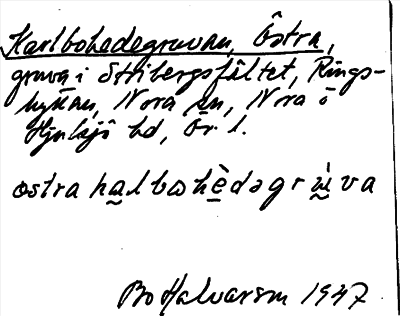 Karlbohedegruvan, Östra,
gruva i Stribergsfältet, Rings-
hyttan, Nora sn, Nora o
Hjulsjö bd, Ör. l.
ostra halbohèdəgrùva
Bo Halvarson 1947